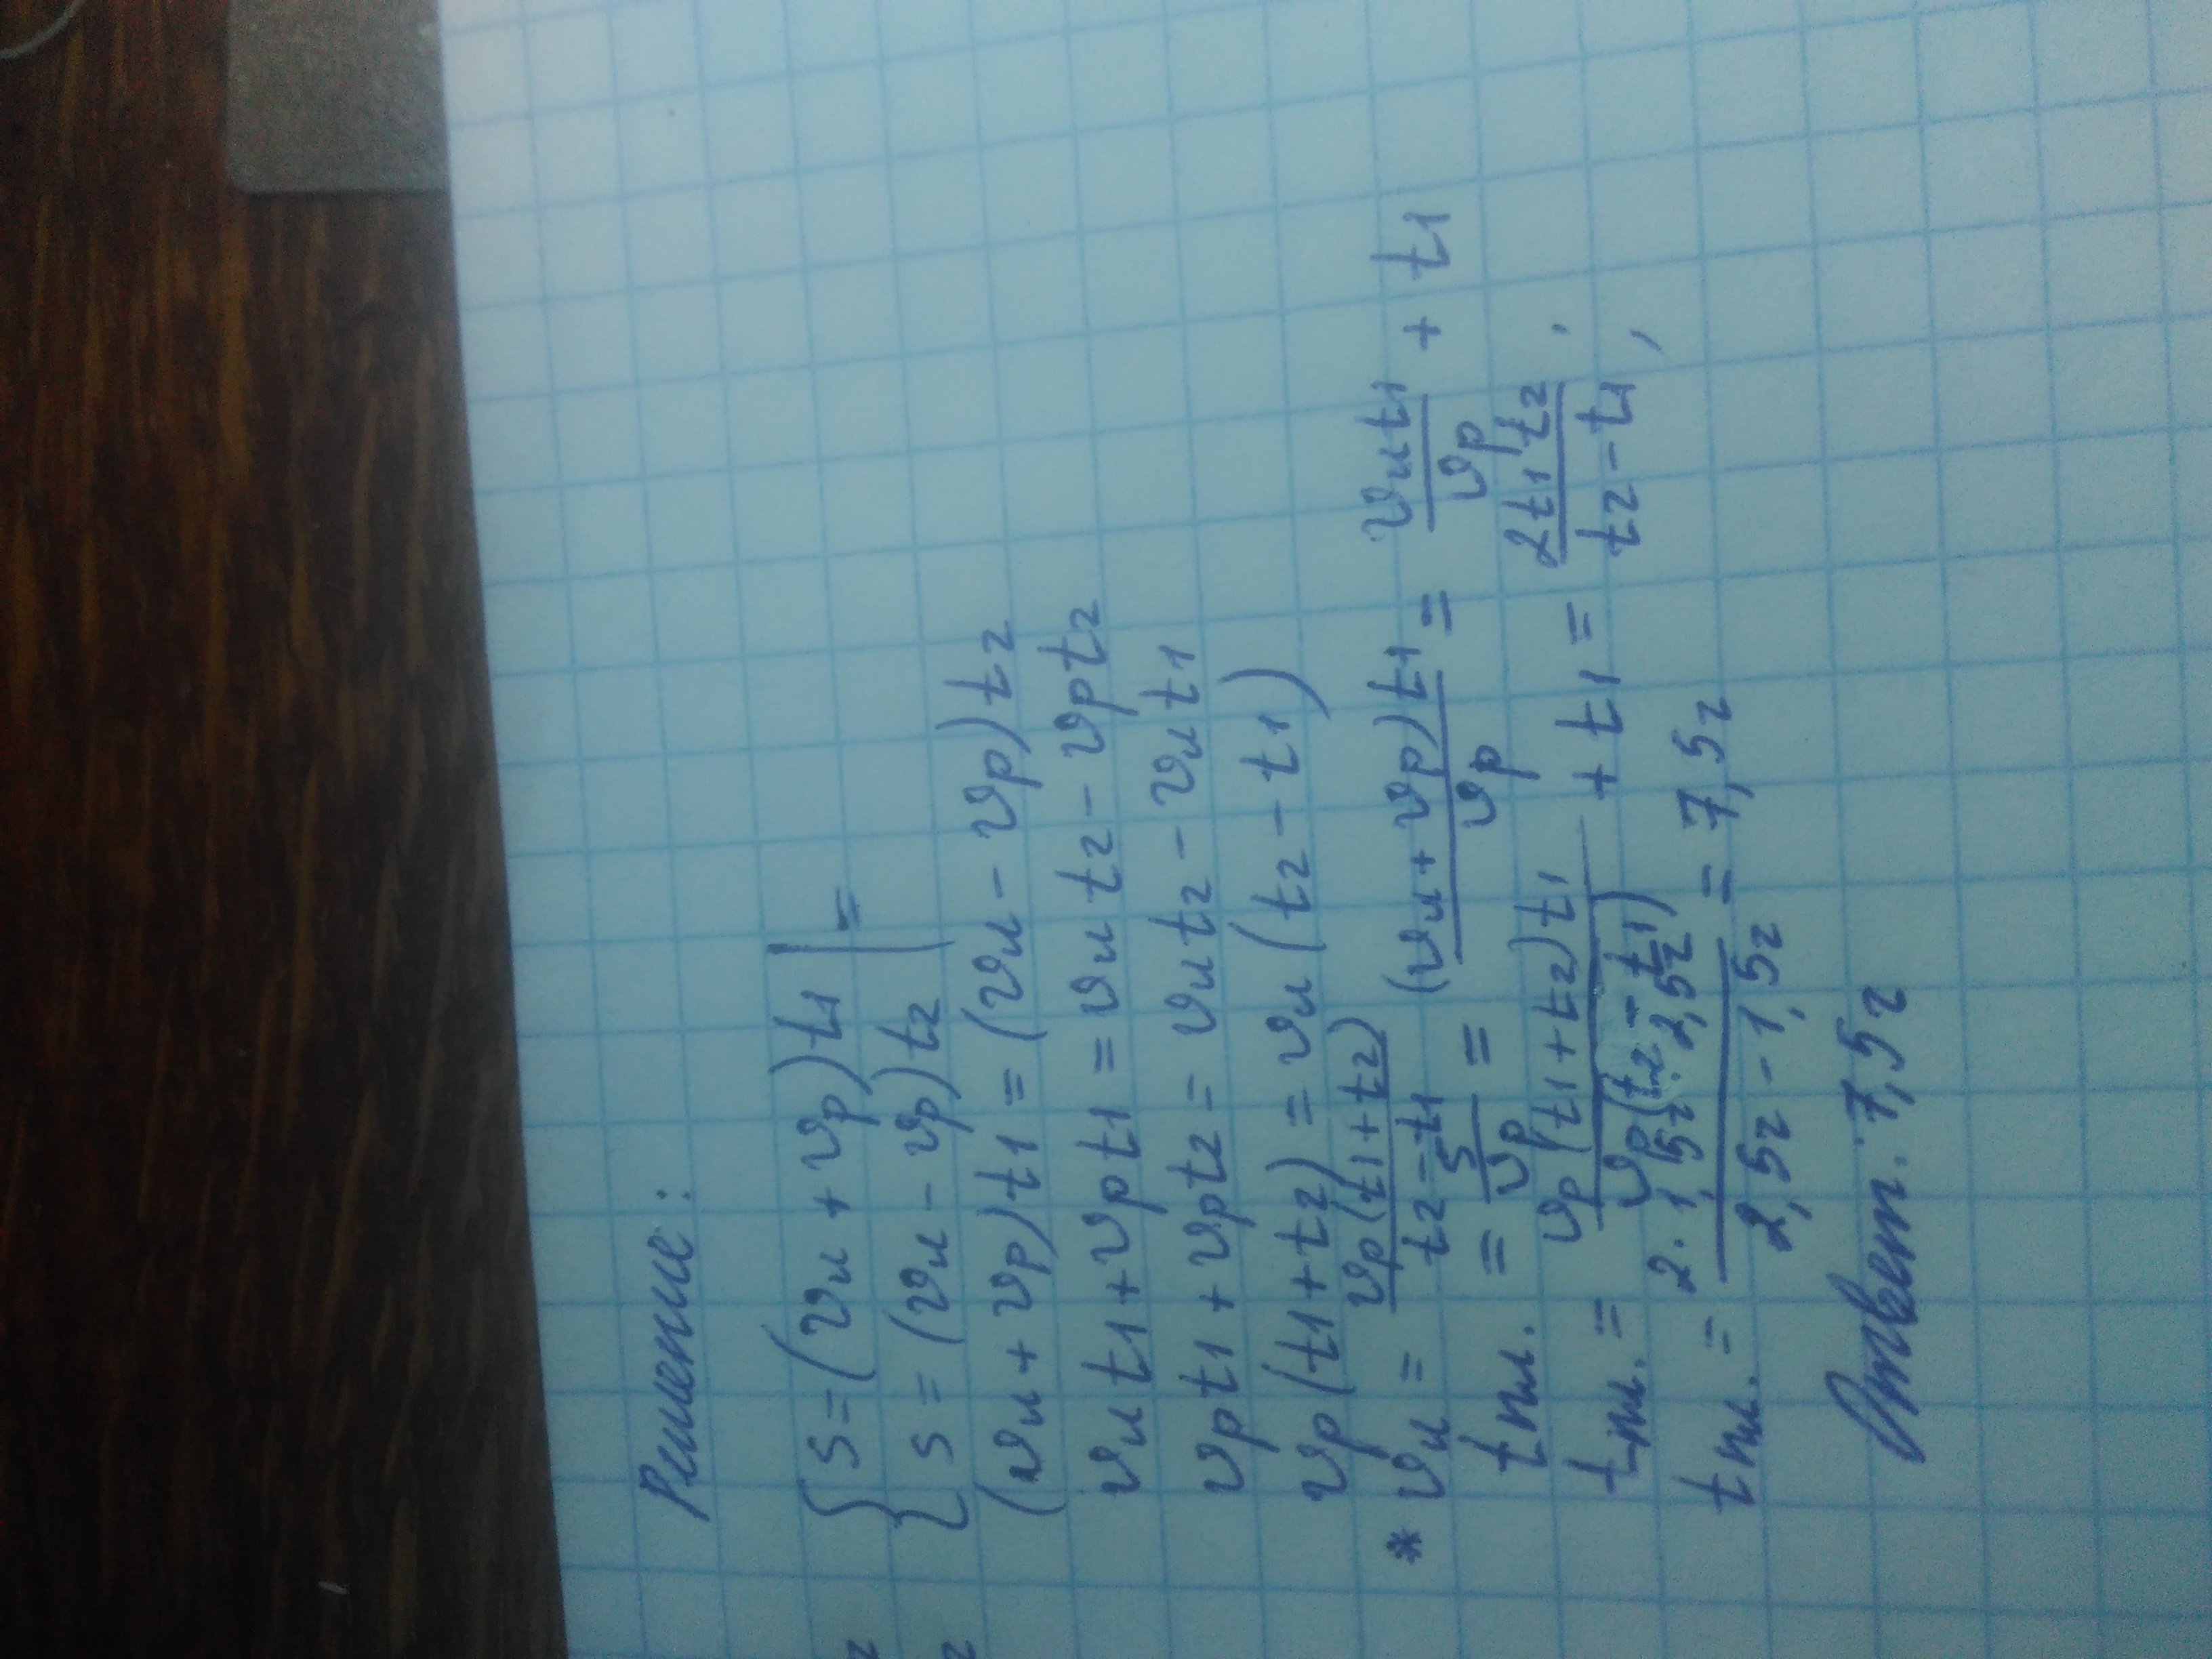 Решение:
{ S=(vл+vp)t1 | =
{ S=(vл-vp)t2 |
(vл+vp)t1=(vл-vp)t2
vл t1+vp t1=vл t2-vp t2
vp t1+vp t2=vл t2-vл t1
vp(t1+t2)=vл(t2-t1)
* vл = vp(t1+t2) / t2-t1
tпл. = S / vp = (vл+vp)t1 / vp = vл t1 / vp + t1
tпл. = vp(t1+t2)t1 / vp(t2-t1) + t1 = 2t1 t2 / t2-t1 ;
tпл. = 2·1,5ч·2,5ч / 2,5ч-1,5ч = 7,5ч
Ответ: 7,5ч